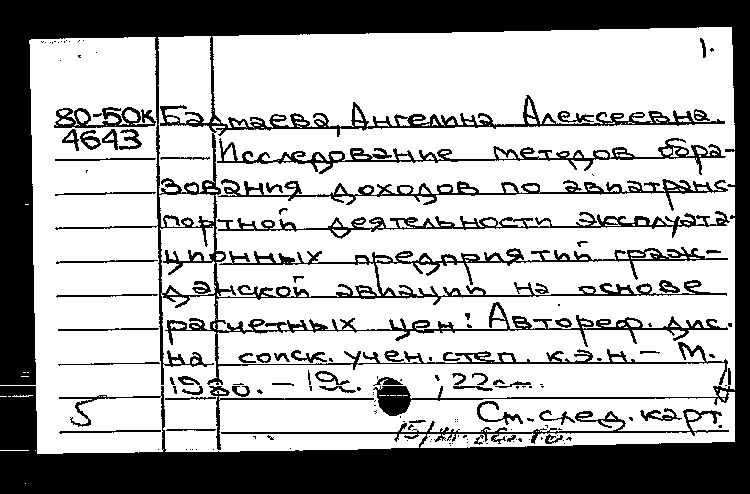 1.
80-50к Бадмаева, Ангелина Алексеевна.
4643
Исследование методов обра-
зования доходов по авиатранс-
портной деятельности эксплуата-
ционных предприятий граж-
данской авиации на основе
расчетных цен: Автореф. дис.
на соиск. учен. степ. к.э.н. – М.
1980. – 19с. ; 22см.
5 См. след. карт.